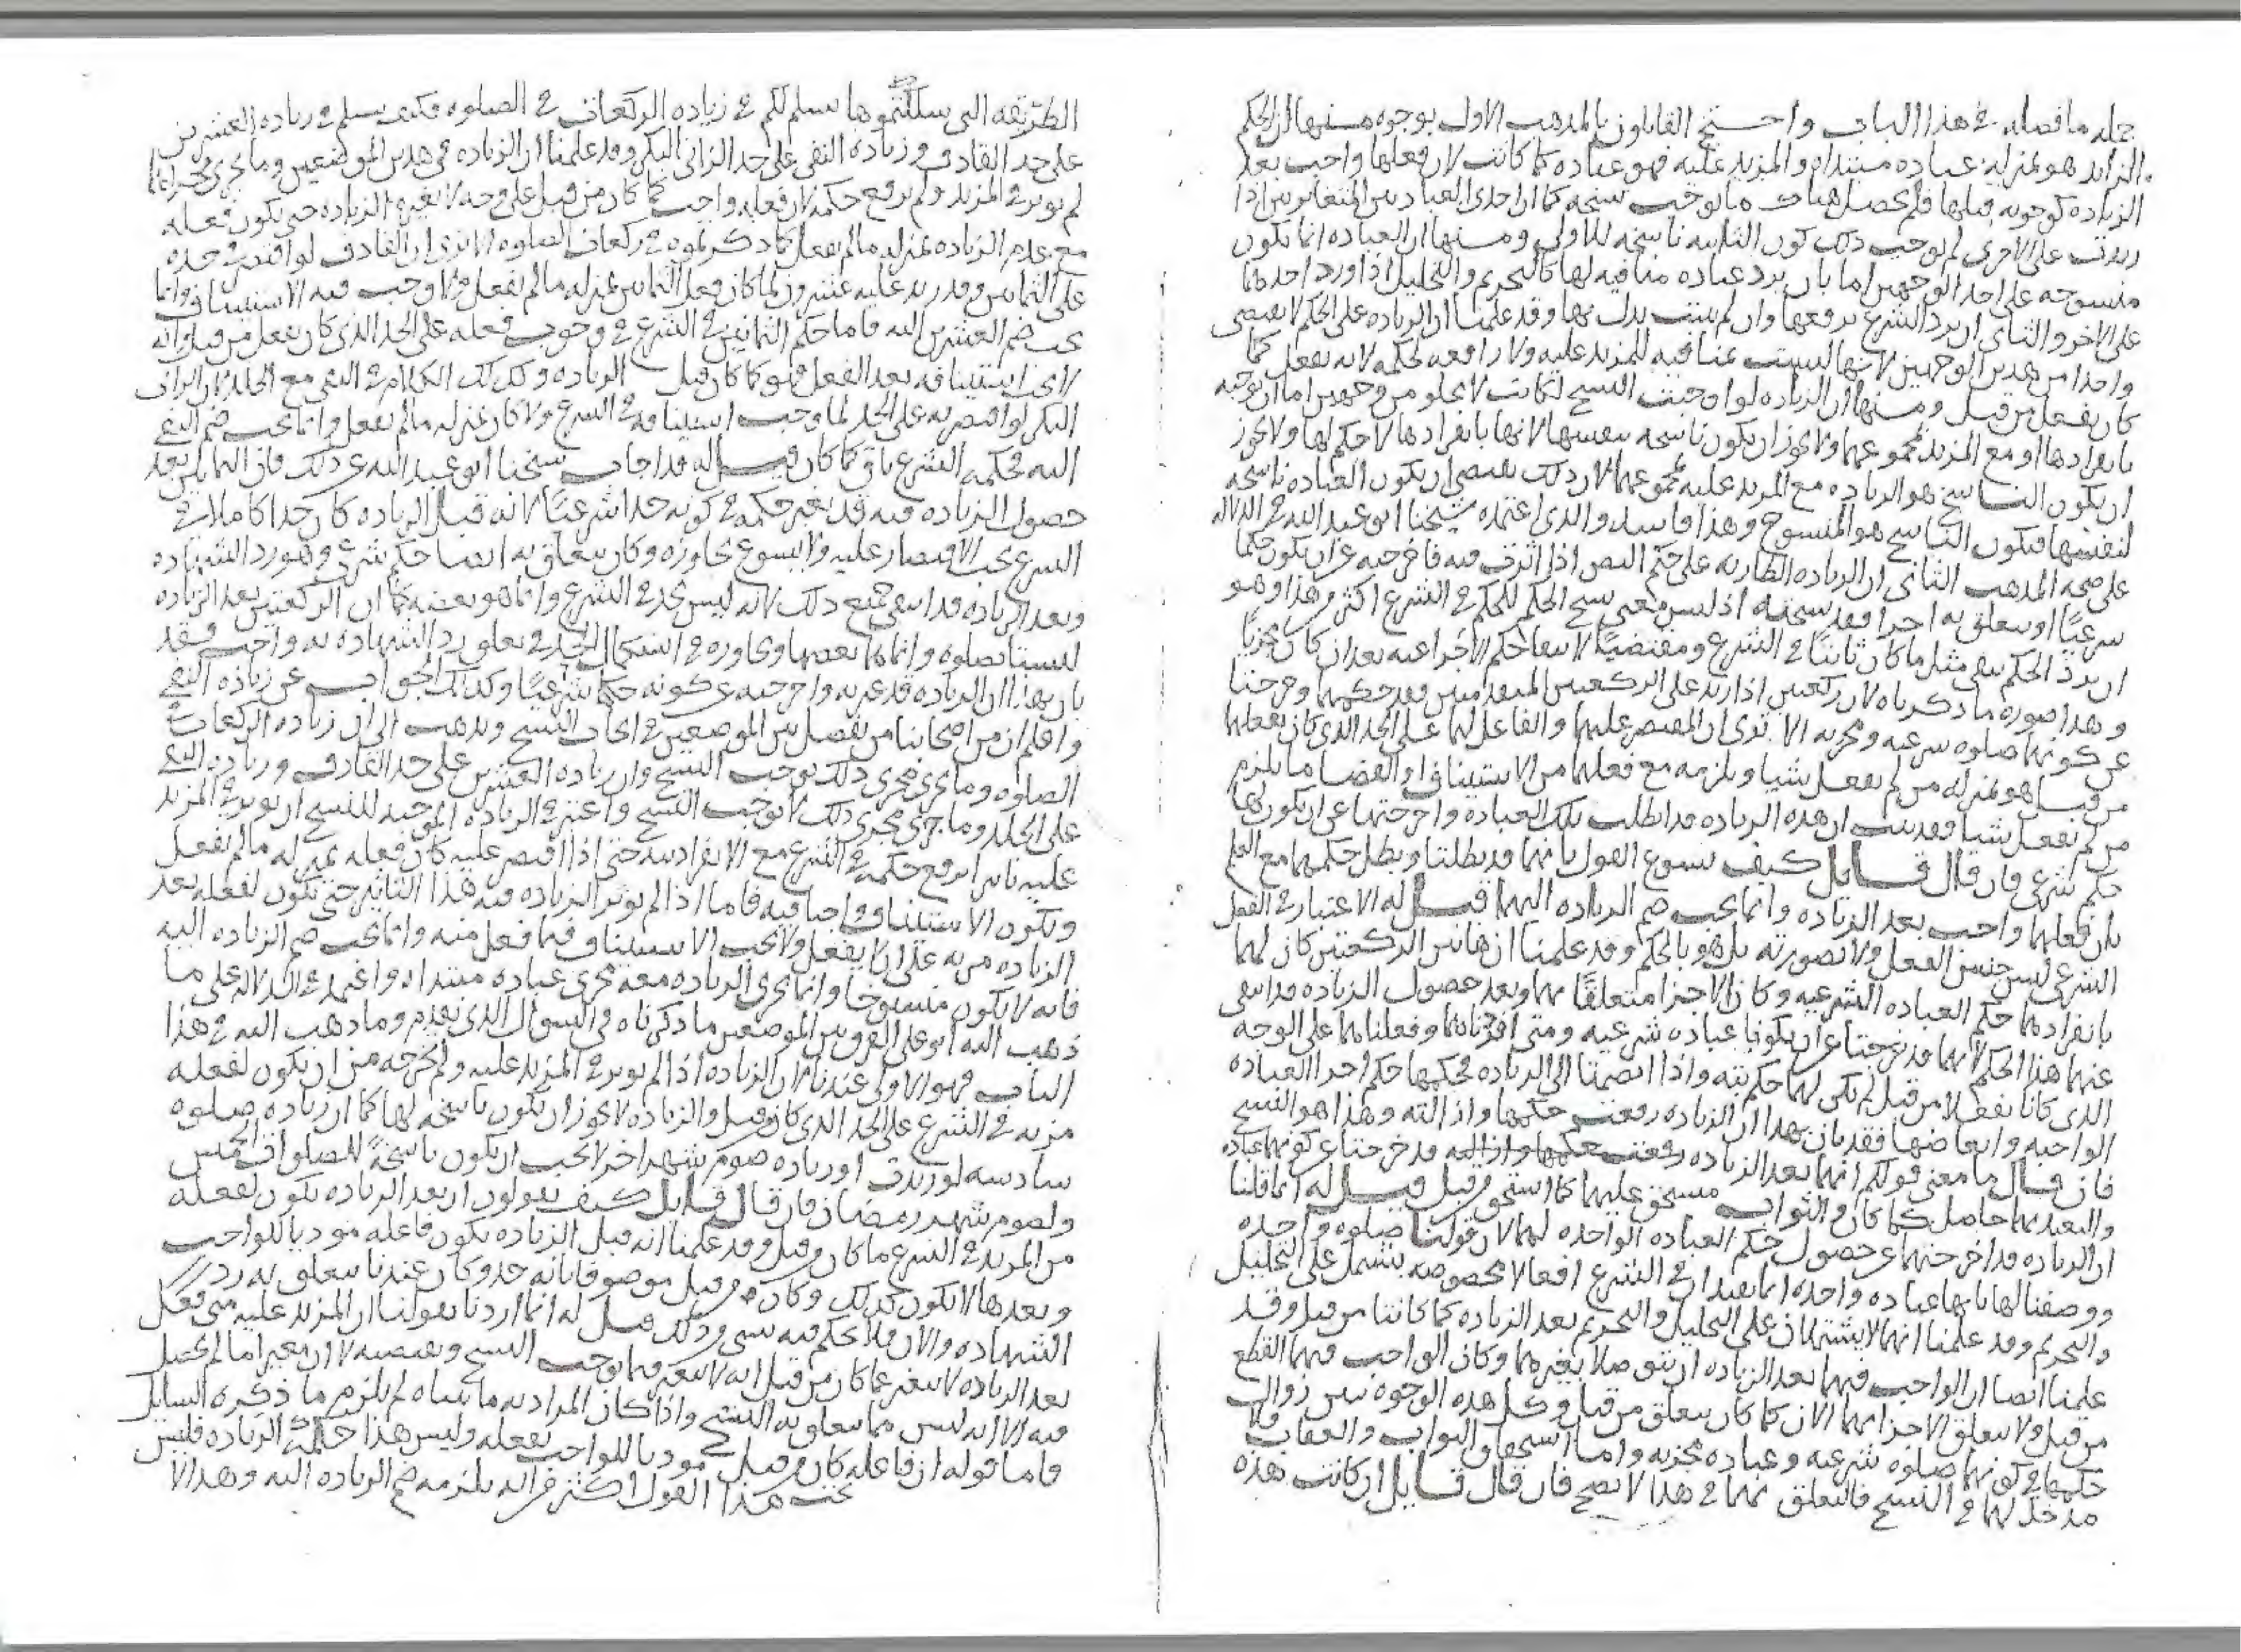 جمله ما قصله في هذا الباب واحتج القايلون بالمذهب الاول بوجوه منها ان الحكم
الزايد هو بمنزله عباده مبتداه والمزيد عليه فهو عباده كما كانت لان فعلها واجب بعد
الزياده كوجوبه قبلها فلم يحصل هناك ما يوجب نسخه كما ان احدى العبادتين المتغايرتين اذا
زيدت على الاخرى لم يوجب ذلك كون الثانيه ناسخه للاولى ومنها ان العباده انما تكون
منسوخه على احد الوجهين اما بان يرد عباده منافيه لها كالتحريم والتحليل اذا ورد احدهما
على الاخر والثاني ان يرد الشرع برفعها وان لم يثبت بدل بها وقد علمنا ان الزياده على الحكم لا يقتضي
واحدا من هذين الوجهين لانها ليست منافيه للمزيد عليه ولا رافعه لحكمه لانه يفعل كما
كان يفعل من قبل ومنها ان الزياده لو اوجبت النسخ لكانت لا يخلو من وجهين اما ان توجبه
بانفرادها او مع المزيد بمجموعهما ولا يجوز ان يكون ناسخه بنفسها لانها بانفرادها لا حكم لها ولا يجوز
ان يكون الناسخ هو الزياده مع المزيد عليه بمجموعهما لان ذلك يقتضي ان يكون العباده ناسخه
لنفسها فيكون الناسخ هو المنسوخ وهذا فاسد والذي اعتمده شيخنا ابو عبد الله في الدلاله
على صحه المذهب الثاني ان الزياده الطاريه على حكم النص اذا اثرت فيه فاخرجته عن ان يكون حكما
شرعيا او يتعلق به اجزا فقد نسخته اذ ليس معنى نسخ الحكم للحكم في الشرع اكثر من هذا وهو
ان يرد الحكم ينفي مثل ما كان ثابتا في الشرع ومقتضيا لانتفا حكم الاجزا عنه بعد ان كان مجزيا
وهذا صوره ما ذكرناه لان ركعتين اذا زيد على الركعتين المتقدمتين فقد حكمهما وخرجتا
عن كونهما صلوه شرعيه ومجزيه الا ترى ان المقتصر عليهما والفاعل لهما على الحد الذي كان يفعلها
من قبل هو بمنزله من لم يفعل شيا ويلزمه مع فعلهما من الاستيناف او القضا ما يلزم
من لم يفعل شيا فقد ثبت ان هذه الزياده قد ابطلت تلك العباده واخرجتها عن ان يكون لها
حكم شرعي فان قال قايل كيف يسوع القول بانهما قد بطلتا وبطل حكمهما مع العلم
بان فعلهما واجب بعد الزياده وانما يجب ضم الزياده اليهما قيل له الاعتبار في الفعل
الشرعي ليس جنس الفعل ولا بصورته بل هو بالحكم وقد علمنا ان هاتين الركعتين كان لهما
بانفرادهما حكم العباده الشرعيه وكان الاجزا متعلقا بهما وبعد حصول الزياده قد انتفى
عنهما هذا الحكم لانهما قد خرجتا عن ان يكونا عباده شرعيه ومتى افردناهما وفعلناهما على الوجه
الذي كانا يفعلا من قبل لم تكن لهما حكم بته واذا انضمتا الى الزياده فحكمها حكم اجزا العباده
الواجبه وابعاضها فقد بان بهذا ان الزياده رفعت حكمها وازالته وهذا هو النسخ
فان قال ما معنى قولكم انهما بعد الزياده قد خرجتا عن كونهما عباده
والتعبد بهما حاصل كما كان والثواب مستحق عليهما كما استحق من قبل قيل له انما قلنا
ان الزياده قد اخرجتهما عن حصول حكم العباده الواحده لهما لان قولنا صلوه واحده
ووصفنا لها بانها عباده واحده انما يفيد ان في الشرع افعالا مخصوصه يشتمل على التحليل
والتحريم وقد علمنا انهما لا يشتملان على التحليل والتحريم بعد الزياده كما كانتا من قبل وقد
علمنا ايضا ان الواجب فيهما بعد الزياده ان يتوصلا بغيرهما وكان الواجب فيهما القطع
من قبل ولا يتعلق الاجزا بهما الان كما كان يتعلق من قبل وكل هذه الوجوه تبين زوال
حكمهما في كونهما صلوه شرعيه وعباده مجزيه واما استحقاق الثواب والعقاب فلا
مدخل لهما في النسخ فالتعلق بهما في هذا لا يصح فان قال قايل ان كانت هذه
الطريقه التي سلكتموها سلم لكم في زياده الركعات في الصلوه فكيف يسلم في زياده العشرين
على حد القاذف وزياده النفي على حد الزاني البكر وقد علمنا ان الزياده في هذين الموضعين وما يجري مجراهما
لم يوثر في المزيد ولم يرفع حكمه لان فعله واجب كما كان من قبل على وجه لا يغيره الزياده حتى يكون فعله
مع عدم الزياده بمنزله ما لم يفعل كما ذكرتموه في ركعات الصلوه الا ترى ان القاذف لو اقتصر في حده
على الثمانين وقد زيد عليه عشرون لما كان فعل الثمانين بمنزله ما لم يفعل ولا وجب فيه الاستيناف وانما
يجب ضم العشرين اليه فاما حكم الثمانين في الشرع في وجوب فعله على الحد الذي كان يفعل من قبل وانه
لا يجب استينافه بعد الفعل فهو كما كان قبل الزياده وكذلك الكلام في النفي مع الجلد لان الزاني
البكر لو اقتصر به على الجلد لما وجب استينافه في الشرع ولا كان بمنزله ما لم يفعل وانما يجب ضم النفي
اليه فحكمه في الشرع باق كما كان قيل له قد اجاب شيخنا ابو عبد الله عن ذلك فان الثمانين بعد
حصول الزياده فيه قد تغير حكمه في كونه حدا شرعيا لانه قبل الزياده كان حدا كاملا في
الشرع يجب الاقتصار عليه ولا يسوع تجاوزه وكان يتعلق به ايضا حكم شرعي وهو رد الشهاده
وبعد الزياده قد انتفى جميع ذلك لانه ليس بحد في الشرع وانما هو بعضه كما ان الركعتين بعد الزياده
ليستا بصلوه وانما هما بعضها وتجاوزه في استكمال الحد في تعلق رد الشهاده به واجب فقد
بان بهذا ان الزياده قد غيرته واخرجته عن كونه حكما شرعيا وكذلك الجواب عن زياده النفي
واعلم ان من اصحابنا من يفصل بين الموضعين في ايجاب النسخ ويذهب الى ان زياده الركعات في
الصلوه وما يجري مجرى ذلك يوجب النسخ وان زياده العشرين على حد القاذف وزياده النفي
على الجلد وما جرى مجرى ذلك لا يوجب النسخ واعتبر في الزياده الموجبه للنسخ ان يوثر في المزيد
عليه تاثيرا يرفع حكمه في الشرع مع الانفراد منه حتى اذا اقتصر عليه كان فعله بمنزله ما لم يفعل
ويكون الاستيناف واجبا فيه فاما اذا لم يوثر الزياده فيه هذا التاثير حتى يكون لفعله بعد
الزياده مزيه على ان لا يفعل ولا يجب الاستيناف فيما فعل منه وانما يجب ضم الزياده اليه
فانه لا يكون منسوخا وانما يجري الزياده معه مجرى عباده مبتداه واعتمد في الدلاله على ما
ذهب اليه ابو على الفرق بين الموضعين ما ذكرناه في السوال الذي تقدم وما ذهب اليه في هذا
الباب فهو الاولى عندنا لان الزياده اذا لم يوثر في المزيد عليه ولم تخرجه من ان يكون لفعله
مزيه في الشرع على الحد الذي كان من قبل والزياده لا يجوز ان يكون ناسخه لها كما ان زياده صلوه
سادسه لو زيدت او زياده صوم شهر اخر لا يجب ان يكون ناسخة للصلوات الخمس
ولصوم شهر رمضان فان قال قايل كيف تقولون ان بعد الزياده يكون لفعله
من المزيه في الشرع ما كان من قبل وقد علمنا انه قبل الزياده يكون فاعله موديا للواجب
وبعدها لا يكون كذلك وكان من قبل موصوفا بانه حد وكان عندنا يتعلق به رد
الشهاده والان فلا يحكم فيه بشي من ذلك قيل له انما اردنا بقولنا ان المزيد عليه متى فعل
بعد الزياده لا يتغير عما كان من قبل انه لا يتغير فيما يوجب النسخ ويقتضيه لا ان تغيرا ما لم يحصل
فيه الا انه ليس مما يتعلق به النسخ واذا كان المراد به ما بيناه لم يلزم ما ذكره السايل
فاما قوله ان فاعله كان من قبل موديا للواجب بفعله وليس هذا حكمه في الزياده فليس
تحت هذا القول اكثر من انه يلزمه ضم الزياده اليه وهذا لا